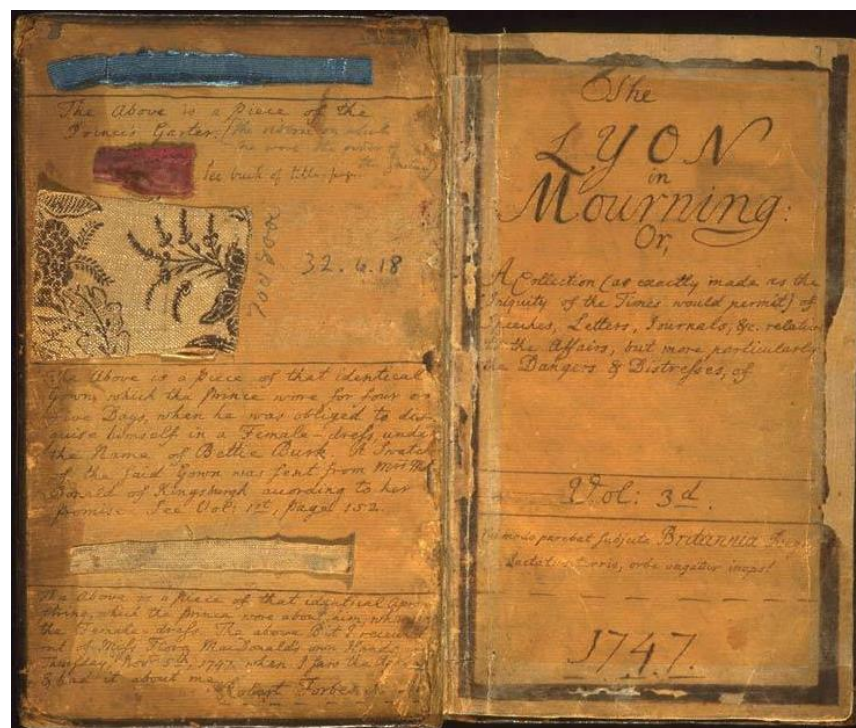 The Above is a piece of the
Prince's Garter. the ribbon on which
he wore the order of
the Garter
See back of title-page.
32.4.18
The Above is a piece of that identical
Gown, which the Prince wore for four or
five Days, when he was obliged to dis-
guise himself in a Female-dress, under
the Name of Bettie Burk. A Swatch
of the said Gown was sent from Mrs
Donald of Kingsburgh according to her
promise. See Vol: 1st, page 152.
The Above is a piece of that identical Apron
string, which the Prince wore about him, when in
the Female-dress. The above Bit I received
out of Miss Flora MacDonald's own Hands
Thursday, Novr. 5th, 1747, when I saw the Apron
& had it about me.
Robert Forbes
The
LYON
in
Mourning:
Or,
A Collection (as exactly made as the
Iniquity of the Times would permit) of
Speeches, Letters, Journals, &c. relative
to the Affairs, but more particularly
the Dangers & Distresses, of
Vol: 3d.
modo parebat subjecta Britannia
Jactatur terris, orbe vagatur inops!
1747.